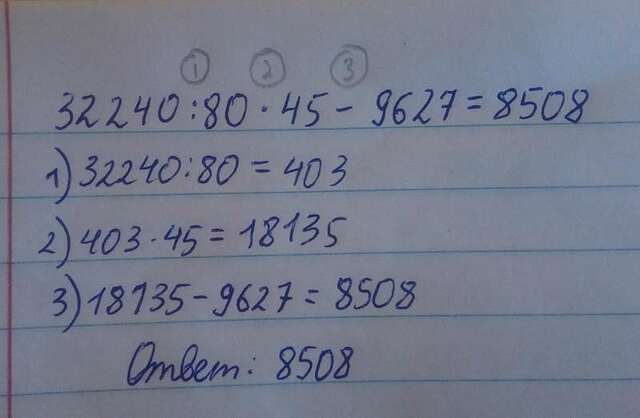 1 2 3
32240:80·45-9627=8508
1) 32240:80=403
2) 403·45=18135
3) 18135-9627=8508
Ответ: 8508